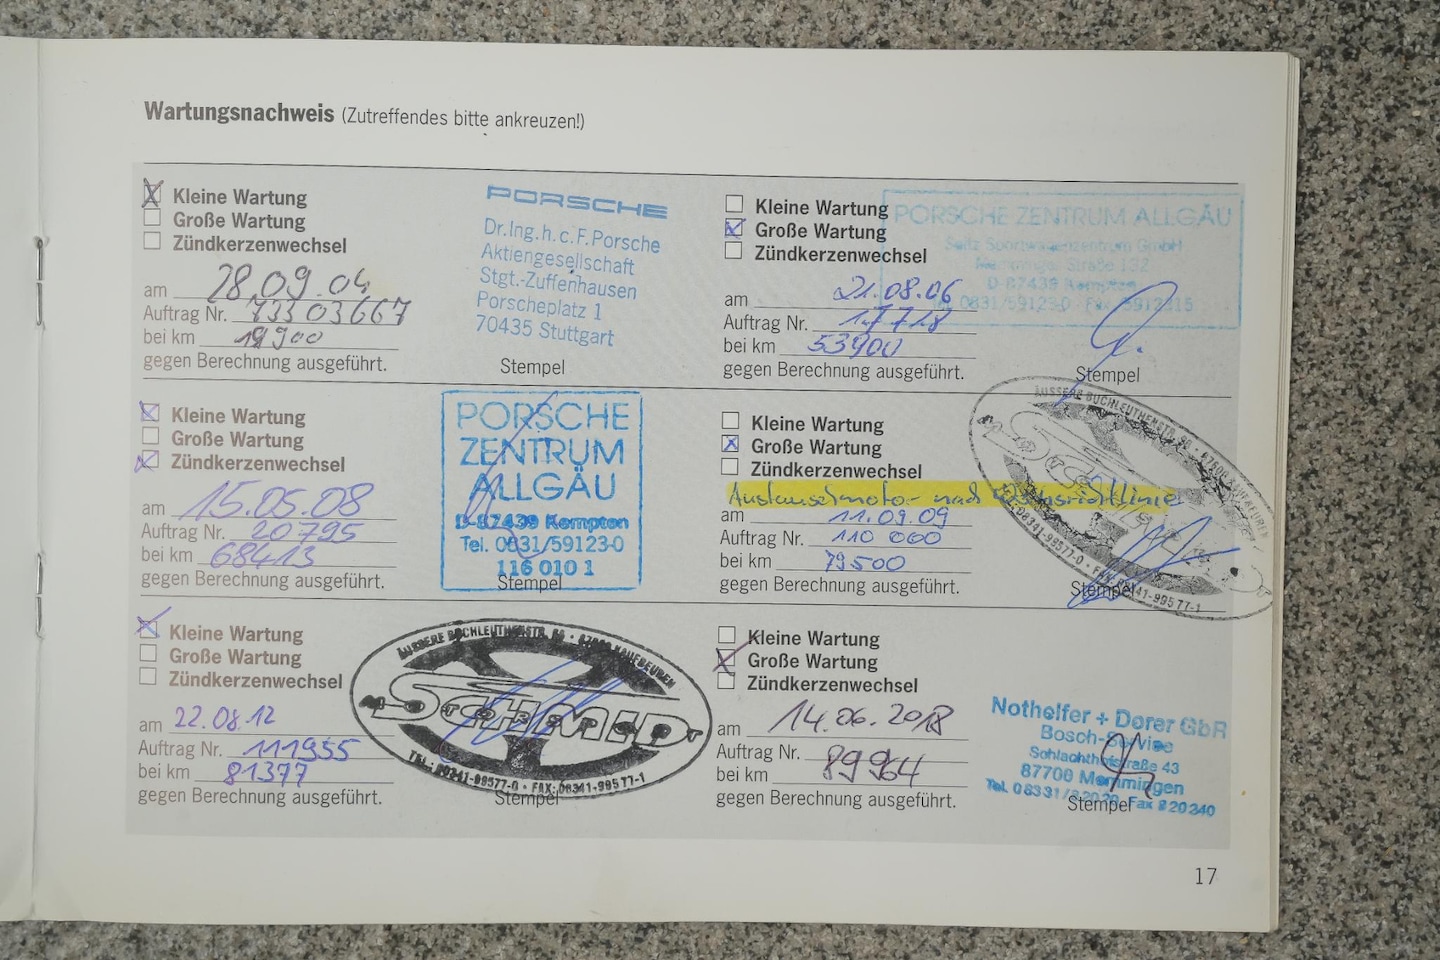 Wartungsnachweis (Zutreffendes bitte ankreuzen!)
Kleine Wartung
Große Wartung
Zündkerzenwechsel
am 28.09.04
Auftrag Nr. 73303667
bei km 19900
gegen Berechnung ausgeführt.
PORSCHE
Dr.Ing.h.c.F.Porsche
Aktiengesellschaft
Stgt.-Zuffenhausen
Porscheplatz 1
70435 Stuttgart
Stempel
Kleine Wartung
Große Wartung
Zündkerzenwechsel
am 21.08.06
Auftrag Nr. 17728
bei km 53900
gegen Berechnung ausgeführt.
PORSCHE ZENTRUM ALLGÄU
Seitz Sportwagenzentrum GmbH
Straße 132
D-87439 Kempten
Tel. 0831/59123-0 Fax 5912315
Stempel
Kleine Wartung
Große Wartung
Zündkerzenwechsel
am 15.05.08
Auftrag Nr. 20795
bei km 68413
gegen Berechnung ausgeführt.
PORSCHE
ZENTRUM
ALLGÄU
D-87439 Kempten
Tel. 0831/59123-0
116 010 1
Stempel
Kleine Wartung
Große Wartung
Zündkerzenwechsel
Austauschmotor nach
am 11.09.09
Auftrag Nr. 110 000
bei km 79500
gegen Berechnung ausgeführt.
ÄUSSERE BUCHLEUTHENSTR. 96 · 87600 KAUFBEUREN
08341-99577-0 · FAX: 08341-99577-1
Stempel
Kleine Wartung
Große Wartung
Zündkerzenwechsel
am 22.08.12
Auftrag Nr. 111955
bei km 81377
gegen Berechnung ausgeführt.
ÄUSSERE BUCHLEUTHENSTR. 96 · 87600 KAUFBEUREN
SCHMID
MOTORSPORT
TEL.: 08341-99577-0 · FAX: 08341-99577-1
Stempel
Kleine Wartung
Große Wartung
Zündkerzenwechsel
am 14.06.2018
Auftrag Nr.
bei km 89964
gegen Berechnung ausgeführt.
Nothelfer + Dorer GbR
Bosch-Service
Schlachthofstraße 43
87700 Memmingen
Tel. 08331/82020 Fax 820240
Stempel
17